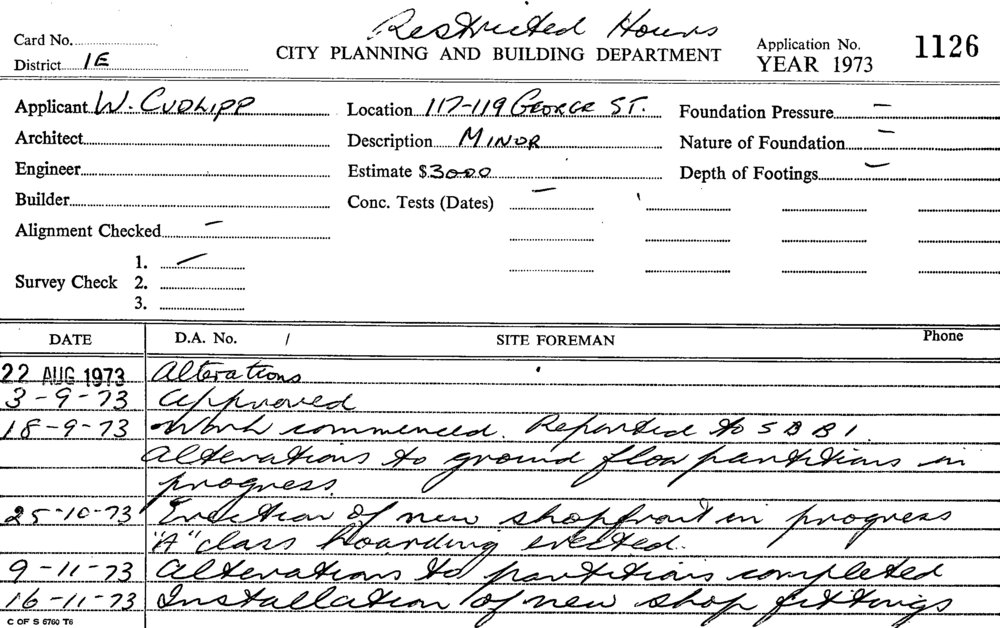 Restricted Hours
Card No.
CITY PLANNING AND BUILDING DEPARTMENT
Application No. 1126
District 1E
YEAR 1973
Applicant W. CUDLIPP
Location 117-119 GEORGE ST.
Foundation Pressure —
Architect
Description MINOR
Nature of Foundation —
Engineer
Estimate $3000
Depth of Footings —
Builder
Conc. Tests (Dates) —
Alignment Checked —
Survey Check 1. —
2.
3.
DATE D.A. No. / SITE FOREMAN Phone
22 AUG 1973 Alterations
3-9-73 Approved
18-9-73 Work commenced. Reported to S B B I.
Alterations to ground floor partitions in
progress.
25-10-73 Erection of new shopfront in progress
"A" class hoarding erected.
9-11-73 Alterations to partitions completed
16-11-73 Installation of new shop fittings
C OF S 6760 T6